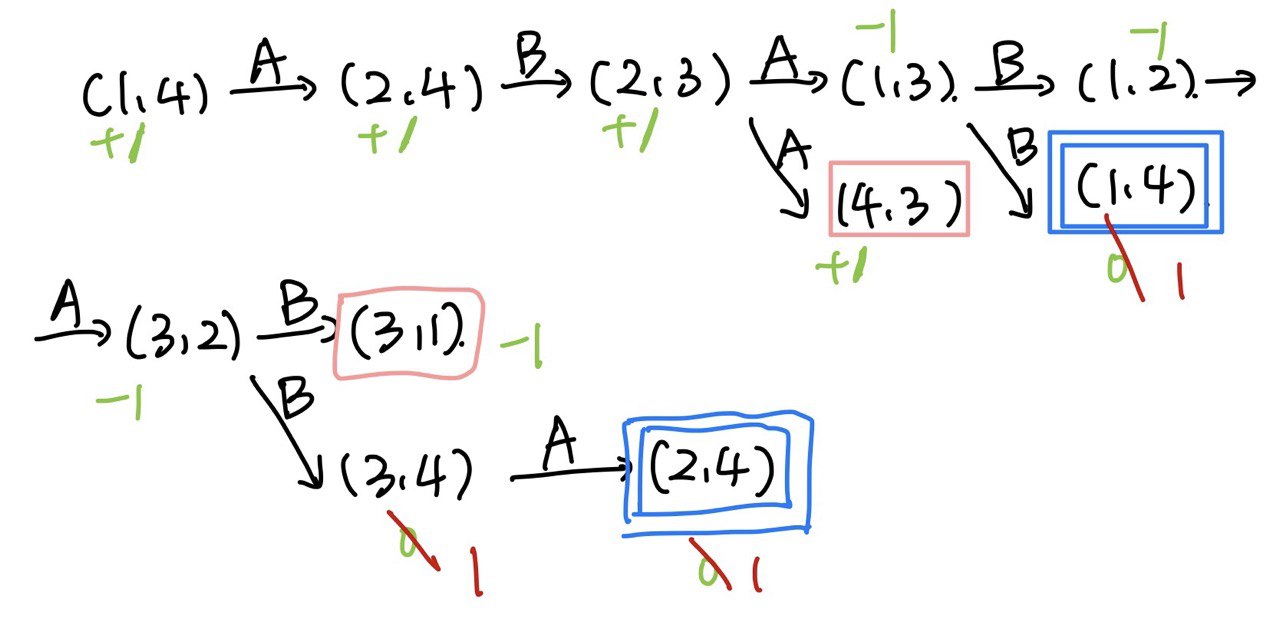 -1 -1
(1,4) A (2,4) B (2,3) A (1,3). B (1,2).
+1 +1 +1 A B
(4,3) (1,4)
+1 0 1
A (3,2) B (3,1). -1
-1 B
(3,4) A (2,4)
0 1 0 1